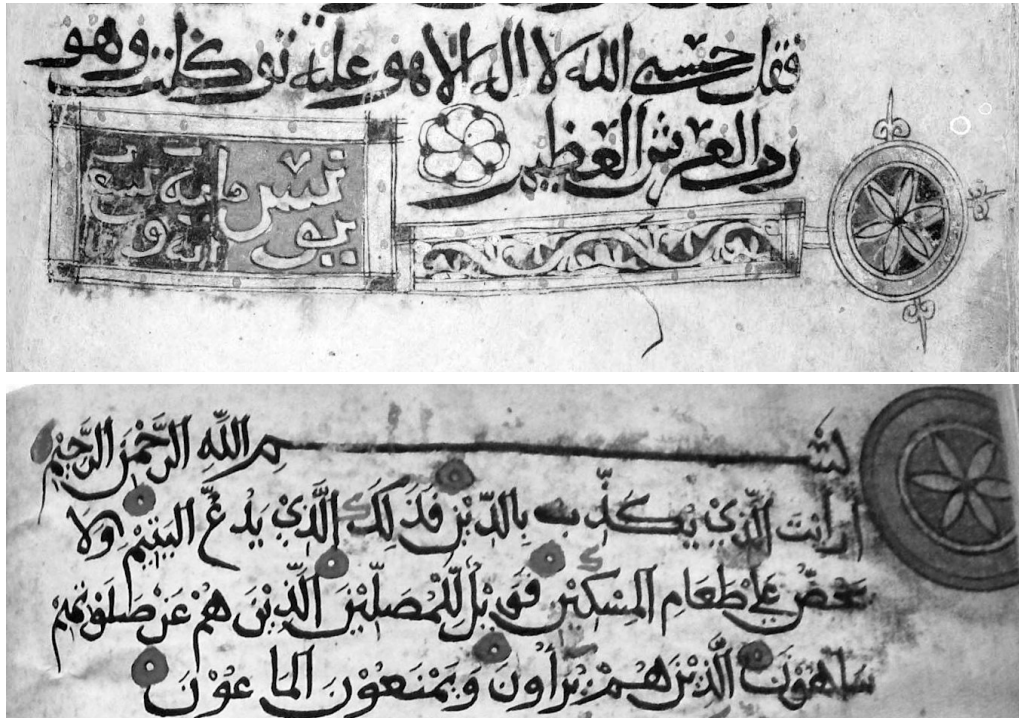 فقل حسبي الله لا اله الا هو عليه توكلت وهو
رب العرش العظيم
يونس مايه
بِسْمِ اللَّهِ الرَّحْمٰنِ الرَّحِيْمِ
اَرَاَيْتَ الَّذِيْ يُكَذِّبُ بِالدِّيْنِ فَذٰلِكَ الَّذِيْ يَدُعُّ الْيَتِيْمَ وَلَا
يَحُضُّ عَلٰى طَعَامِ الْمِسْكِيْنِ فَوَيْلٌ لِّلْمُصَلِّيْنَ الَّذِيْنَ هُمْ عَنْ صَلٰوتِهِمْ
سَاهُوْنَ الَّذِيْنَ هُمْ يُرَاؤُنَ وَيَمْنَعُوْنَ الْمَاعُوْنَ